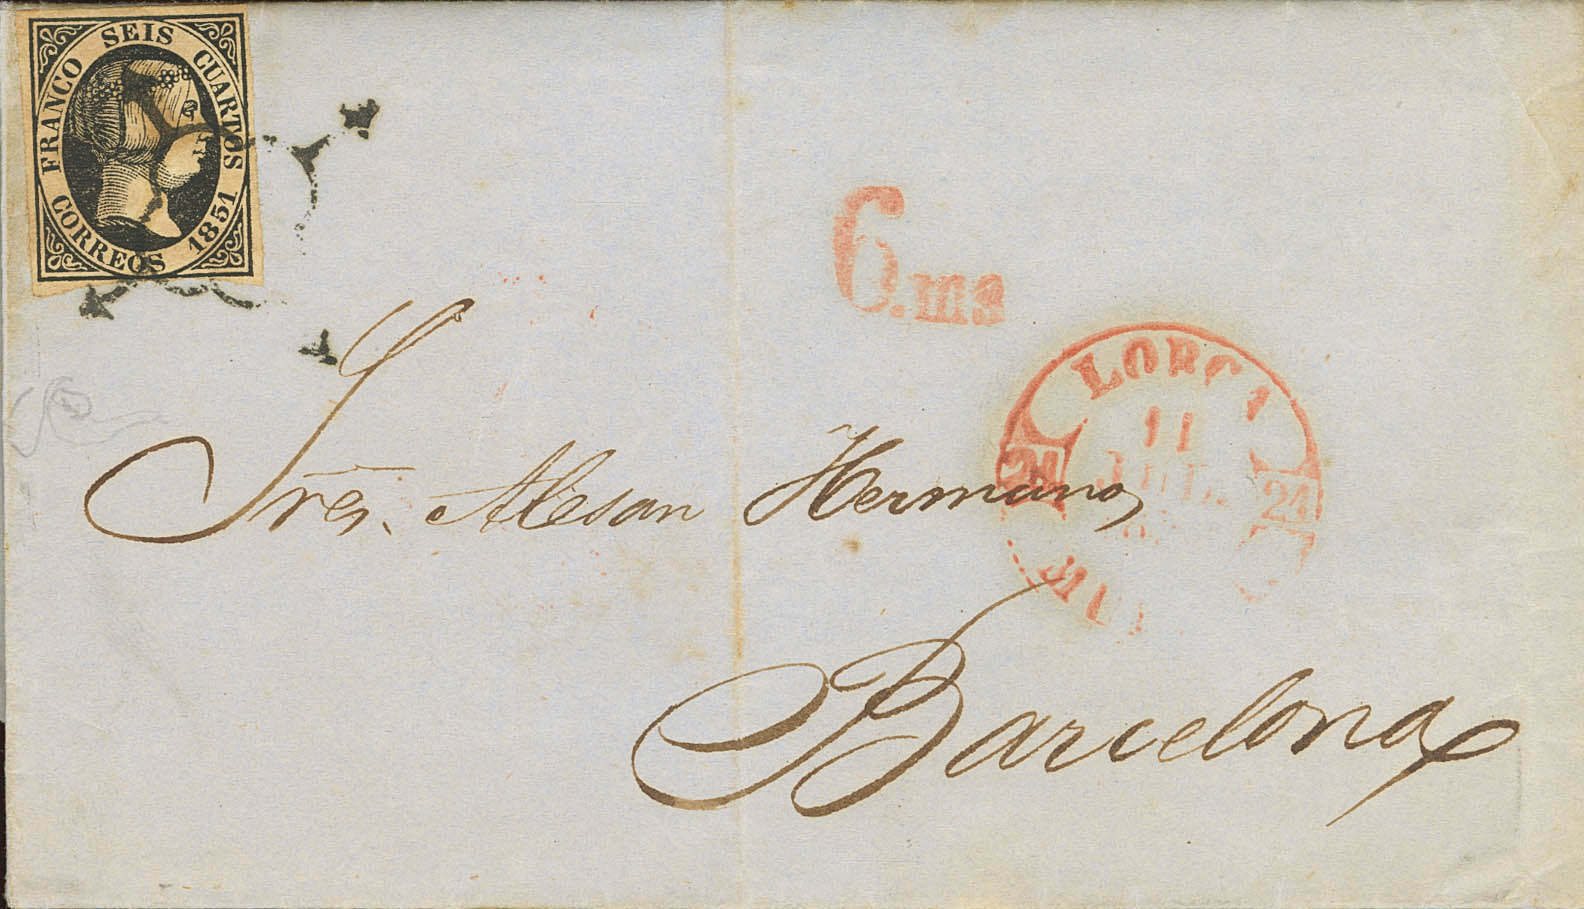 FRANCO SEIS CUARTOS
CORREOS 1851
6.ms
LORCA
11
JUL.
24 24
Sres. Alesan Hermanos
Barcelona